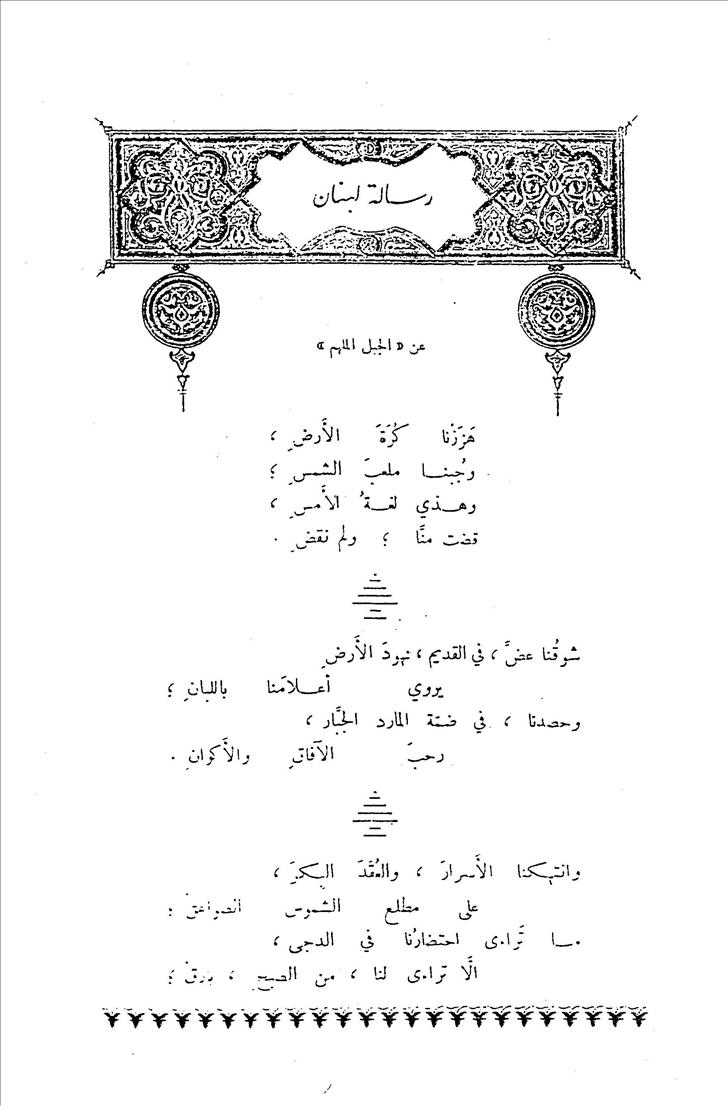 رسالة لبنان
عن « الجبل الملهم »
هَزَزْنا كُرَةَ الأَرضِ ،
وجُبنا ملعبَ الشمسِ ؛
وهذي لغةُ الأَمسِ ،
قضت منَّا ؛ ولم نقضِ .
شوقُنا عضَّ ، في القديم ، نهودَ الأَرضِ
يروي أعلامَنا باللبانِ ؛
وحصدنا ، في ضمّة المارد الجبَّار ،
رحبَ الآفاقِ والأَكوانِ .
وانتهكنا الأَسرارَ ، والعُقَدَ البكرَ ،
على مطلع الشموس الصواعقْ ؛
ما تَراءى احتضارُنا في الدجى ،
الَّا تراءى لنا ، من الصبحِ ، بارقْ ؛